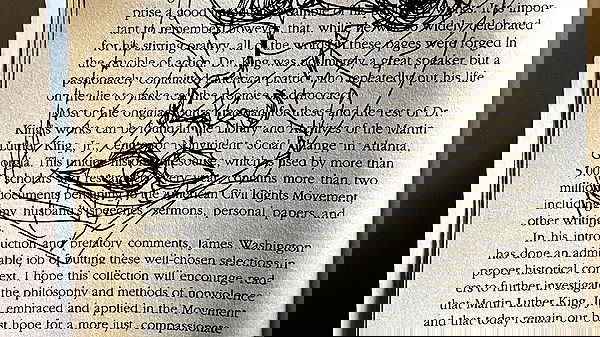 prise a good of his is impor-
tant to remember, however, that, while he was so widely celebrated
for his stirring oratory, all of the words in these pages were forged in
the crucible of action. Dr. King was not merely a great speaker, but a
passionately committed American patriot who repeatedly put his life
on the line to make real the
Most of the original for these and the rest of Dr.
King's works can be found in the Library and Archives of the Martin
Luther King, Jr., Center for Nonviolent Social Change in Atlanta,
Georgia. This unique historical resource, which is used by more than
5,000 scholars and researchers every year, contains more than two
million documents pertaining to the American Civil Rights Movement
including my husband's speeches, sermons, personal papers and
other writing
In his introduction and prefatory comments, James Washington
has done an admirable job of putting these well-chosen selections in
proper historical context. I hope this collection will encourage read-
ers to further investigate the philosophy and methods of nonviolence
that Martin Luther King, Jr. embraced and applied in the Movement
and that today remain our best hope for a more just, compassionate